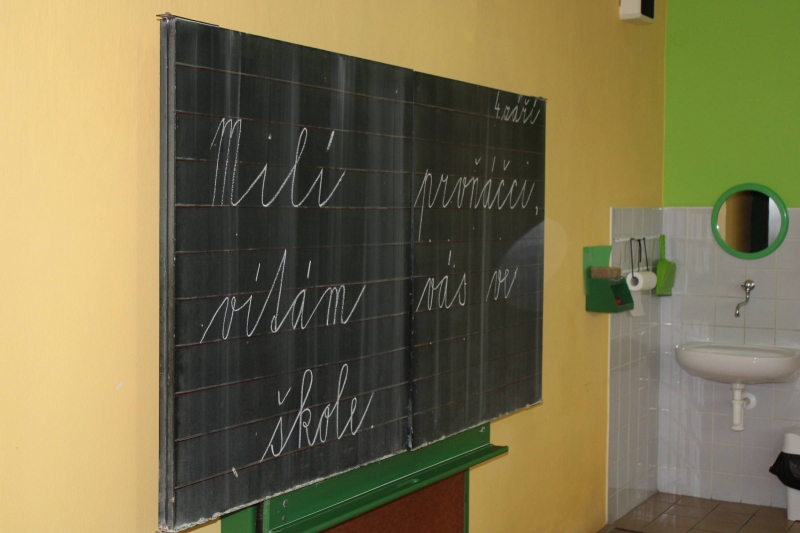 4. září
Milí prvňáčci,
vítám vás ve
škole.